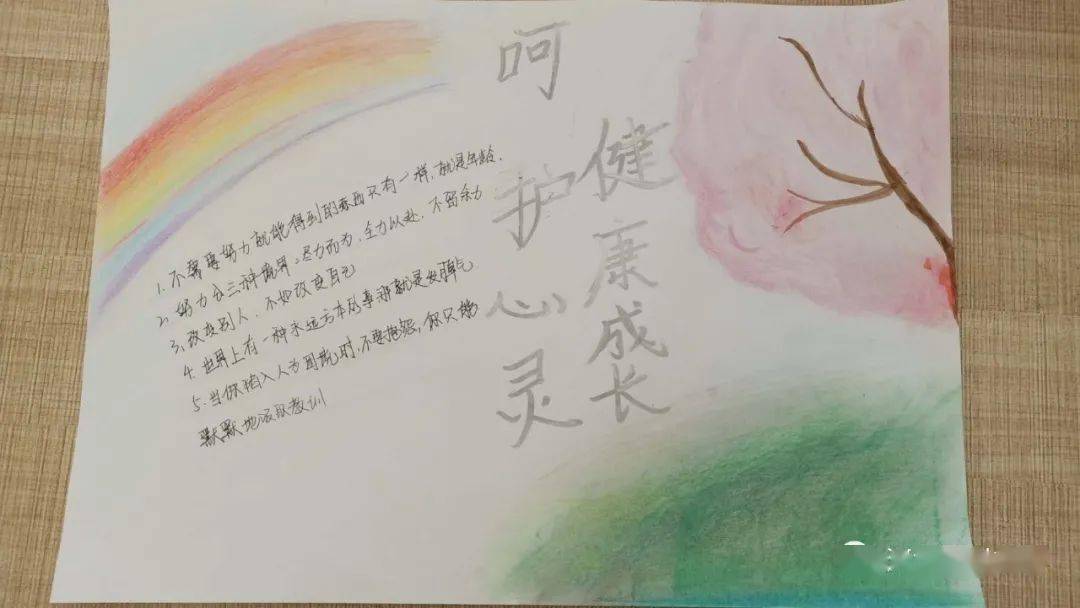 呵护心灵
健康成长
1. 不需要努力就能得到的东西只有一样,就是年龄.
2. 努力分三种境界:尽力而为,全力以赴,不留余力
3. 改变别人,不如改变自己
4. 世界上有一种永远亏本的事那就是发脾气
5. 当你陷入人为困扰时,不要抱怨,你只能
默默地汲取教训